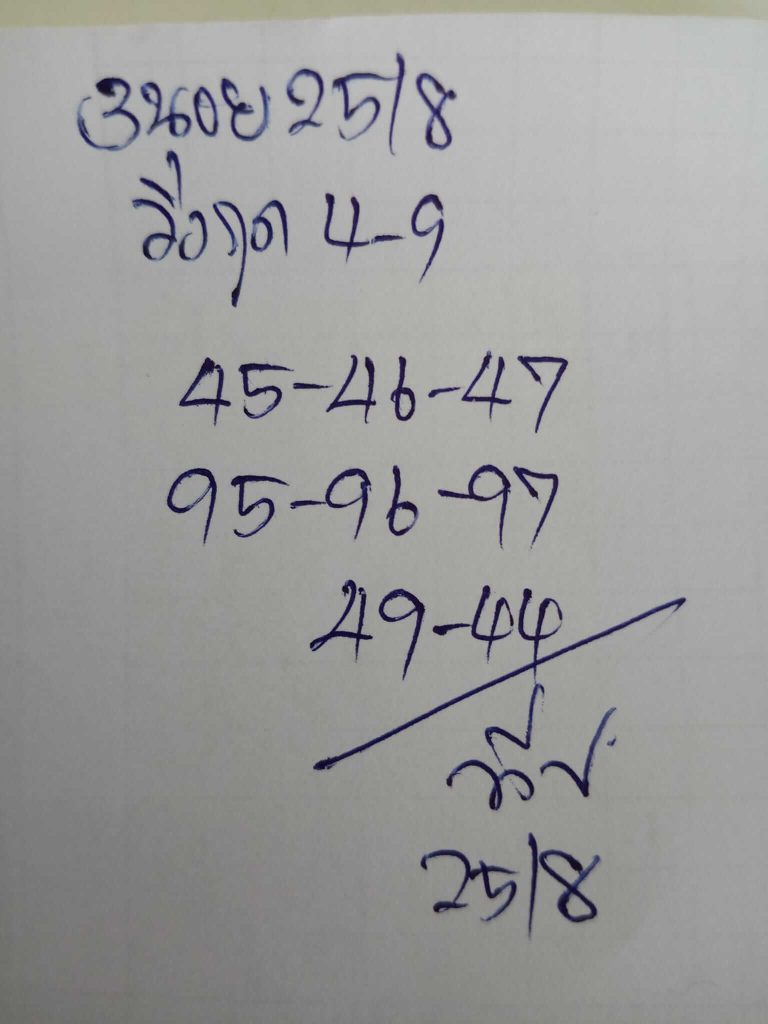 ฮนอย 25/8
4-9
45-46-47
95-96-97
49-44
25/8